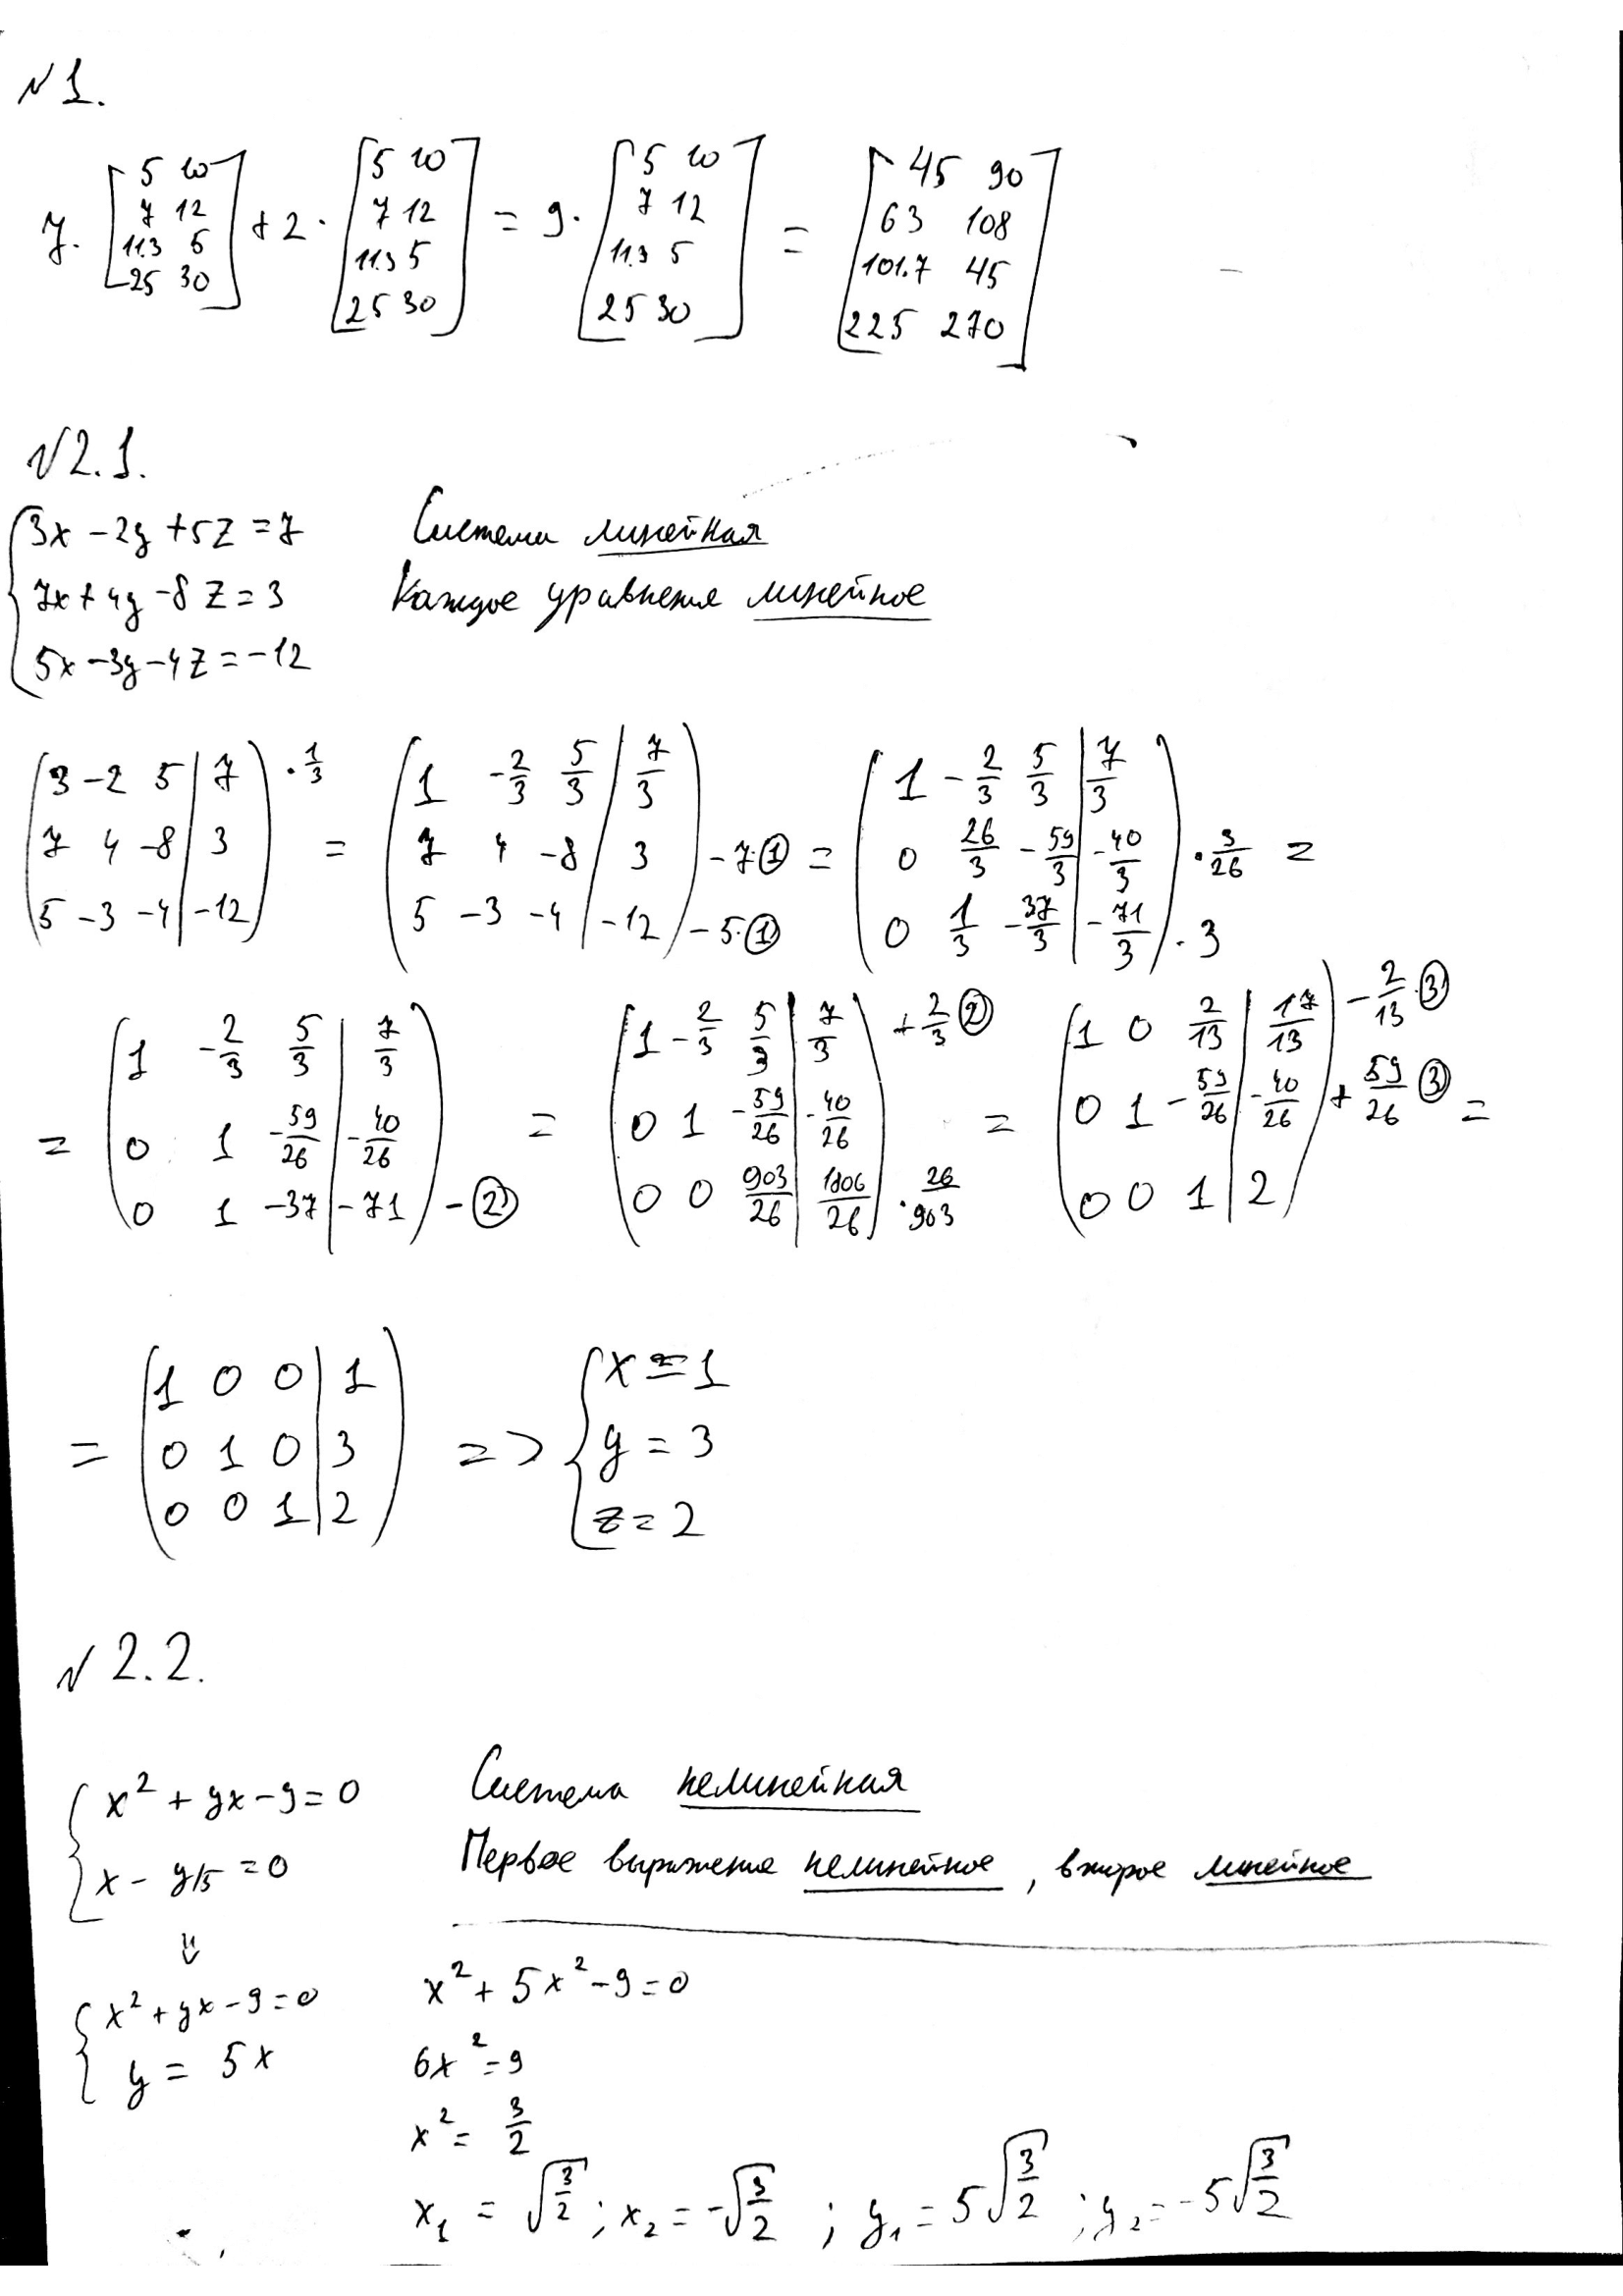 N 1.
7· [5 10; 7 12; 11.3 5; 25 30] + 2· [5 10; 7 12; 11.3 5; 25 30] = 9· [5 10; 7 12; 11.3 5; 25 30] = [45 90; 63 108; 101.7 45; 225 270]
N 2.1.
3x - 2y + 5z = 7 Система линейная
7x + 4y - 8z = 3 Каждое уравнение линейное
5x - 3y - 4z = -12
(3 -2 5 | 7; 7 4 -8 | 3; 5 -3 -4 | -12) ·1/3 = (1 -2/3 5/3 | 7/3; 7 4 -8 | 3; 5 -3 -4 | -12) -7·① -5·① = (1 -2/3 5/3 | 7/3; 0 26/3 -59/3 | -40/3; 0 1/3 -37/3 | -71/3) ·3/26 ·3 =
= (1 -2/3 5/3 | 7/3; 0 1 -59/26 | -40/26; 0 1 -37 | -71) -② = (1 -2/3 5/3 | 7/3; 0 1 -59/26 | -40/26; 0 0 903/26 | 1806/26) +2/3② ·26/903 = (1 0 2/13 | 17/13; 0 1 -59/26 | -40/26; 0 0 1 | 2) -2/13·③ +59/26③ =
= (1 0 0 | 1; 0 1 0 | 3; 0 0 1 | 2) => { x = 1; y = 3; z = 2
N 2.2.
x² + yx - 9 = 0 Система нелинейная
x - y/5 = 0 Первое выражение нелинейное, второе линейное
⇓
x² + yx - 9 = 0 x² + 5x² - 9 = 0
y = 5x 6x² = 9
x² = 3/2
x₁ = √3/2 ; x₂ = -√3/2 ; y₁ = 5√3/2 ; y₂ = -5√3/2